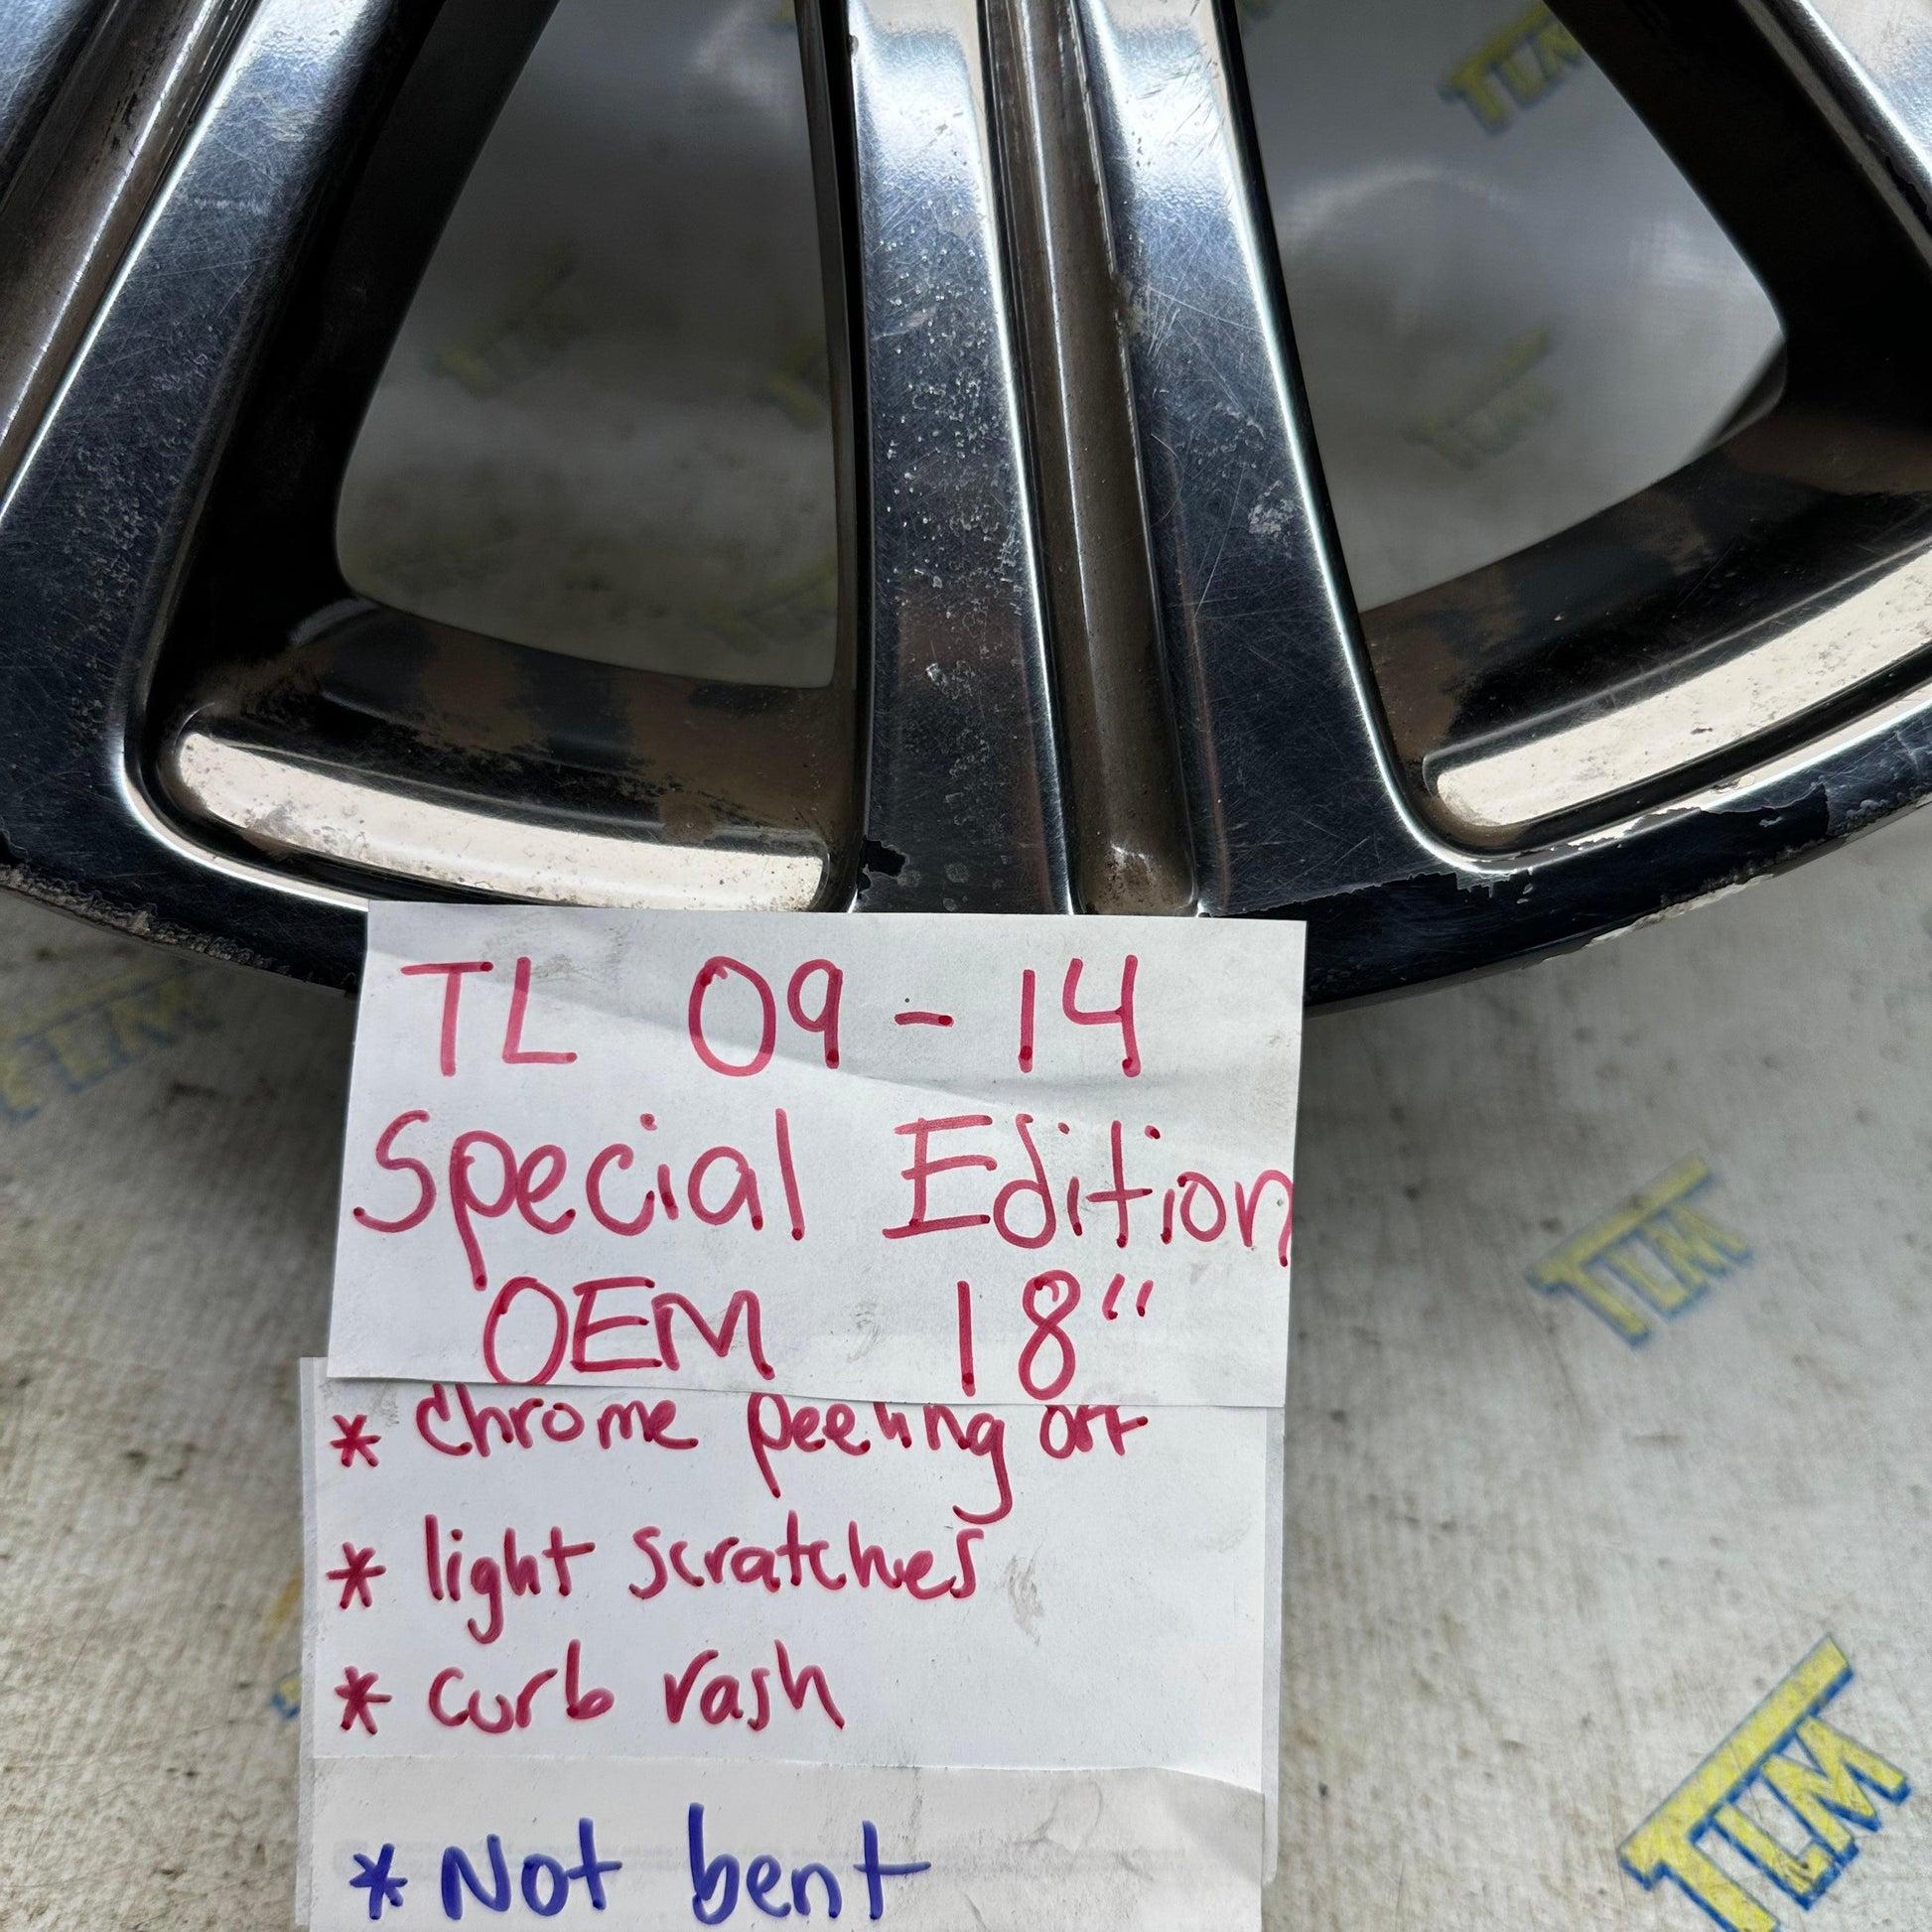 TL 09 - 14
Special Edition
OEM 18"
* Chrome peeling off
* light scratches
* curb rash
* Not bent
TLM
TLM
TLM
TLM
TLM
TLM